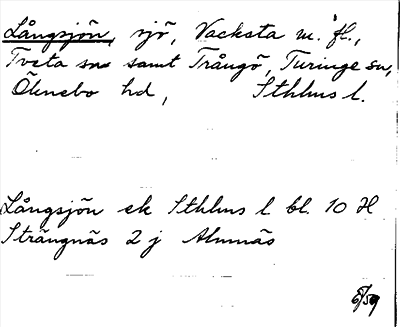 Långsjön, sjö, Vacksta m. fl.,
Tveta sn samt Trångö, Turinge sn,
Öknebo hd, Sthlms l.
Långsjön ek Sthlms l bl. 10 H
Strängnäs 2 j Almnäs
6/59